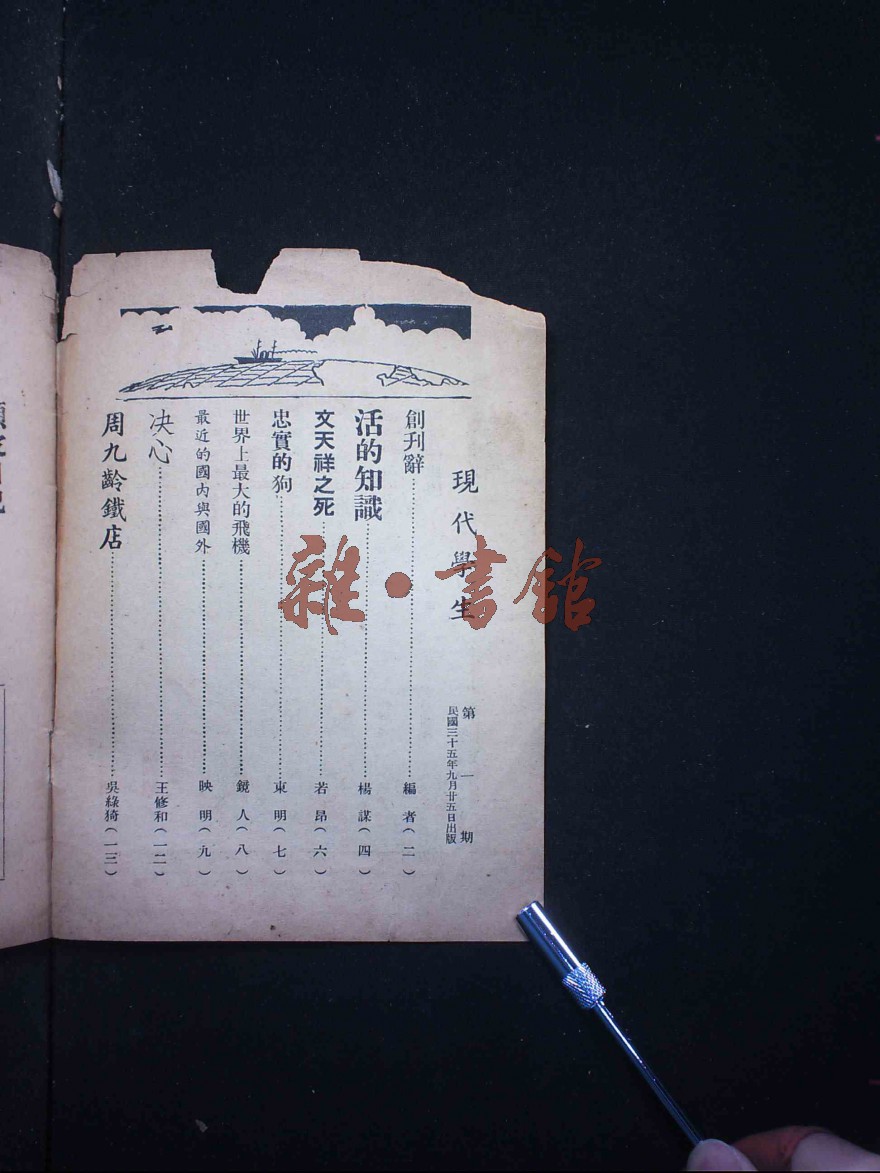 現代學生
第一期
民國三十五年九月廿五日出版
創刊辭 編者(二)
活的知識 楊謀(四)
文天祥之死 若昂(六)
忠實的狗 東明(七)
世界上最大的飛機 鏡人(八)
最近的國內與國外 映明(九)
決心 王修和(一二)
周九齡鐵店 吳綠猗(一三)
雜·書館